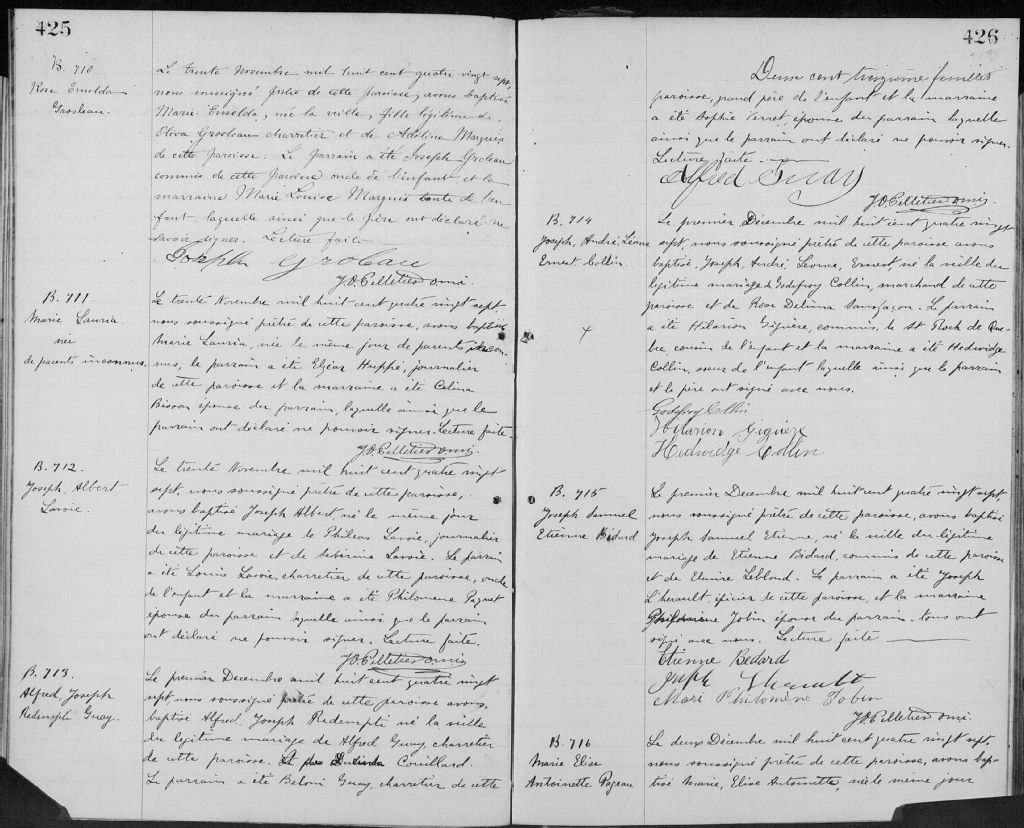 425
B. 710
Rose Emilda
Grosleau.
Le trente Novembre mil huit cent quatre-vingt sept,
nous soussigné prêtre de cette paroisse, avons baptisé
Marie Emelda, née la veille, fille légitime de
Oliva Grosleau charretier et de Adeline Marquis
de cette paroisse. Le parrain a été Joseph Groleau
commis de cette paroisse oncle de l'enfant et la
marraine Marie Louise Marquis tante de l'en
fant, laquelle ainsi que le père ont déclaré ne
savoir signer. Lecture faite
Joseph Groleau
J.O. Pelletier
B. 711
Marie Lauria
née
de parents inconnus.
Le trente Novembre mil huit cent quatre vingt sept
nous soussigné prêtre de cette paroisse, avons baptisé
Marie Lauria, née le même jour de parents incon-
nus, le parrain a été Elzéar Huppé, journalier
de cette paroisse et la marraine a été Célina
Bisson épouse du parrain, laquelle ainsi que le
parrain ont déclaré ne pouvoir signer. Lecture faite.
J.O. Pelletier
B. 712.
Joseph, Albert
Lavoie.
Le trente Novembre mil huit cent quatre vingt
sept, nous soussigné prêtre de cette paroisse,
avons baptisé Joseph Albert, né le même jour
du légitime mariage de Phileas Lavoie, journalier
de cette paroisse et de Séverine Lavoie. Le parrain
a été Louis Lavoie, charretier de cette paroisse, oncle
de l'enfant et la marraine a été Philomene Paquet
épouse du parrain laquelle ainsi que le parrain
ont déclaré ne pouvoir signer. Lecture faite.
J.O. Pelletier
B. 713.
Alfred, Joseph
Redempti Guay.
Le premier Decembre mil huit cent quatre vingt
sept, nous soussigné prêtre de cette paroisse avons
baptisé Alfred, Joseph Redempti né la veille
du légitime mariage de Alfred Guay, charretier
de cette paroisse. Couillard.
Le parrain a été Beloni Guay, charretier de cette
426
Deux cent treizième feuillet
paroisse, grand père de l'enfant et la marraine
a été Sophie Verret, épouse du parrain laquelle
ainsi que le parrain ont déclaré ne pouvoir signer.
Lecture faite.
Alfred Guay
J.O. Pelletier
B. 714
Joseph, André, Léonce
Ernest Collin.
Le premier Décembre mil huit cent quatre vingt
sept, nous soussigné prêtre de cette paroisse avons
baptisé, Joseph, André, Leonce, Ernest, né la veille du
légitime mariage de Godefroy Collin, marchand de cette
paroisse et de Rose Delima Sansfaçon. Le parrain
a été Hilarion Giguère, commis, de St Roch de Qué-
bec, cousin de l'enfant et la marraine a été Hedwidge
Collin, soeur de l'enfant laquelle ainsi que le parrain
et le père ont signé avec nous.
Godefroy Collin
Hilarion Giguère
Hedwidge Collin
B. 715
Joseph Samuel
Etienne Bédard
Le premier Decembre mil huit cent quatre vingt sept,
nous soussigné prêtre de cette paroisse, avons baptisé
Joseph Samuel Etienne, né la veille du légitime
mariage de Etienne Bédard, commis de cette paroisse
et de Elmire Leblond. Le parrain a été Joseph
L'herault, épicier de cette paroisse, et la marraine
Philomene Jobin épouse du parrain. tous ont
signé avec nous. Lecture faite
Etienne Bedard
Joseph Lherault
Mari Philomène Jobin
J.O. Pelletier
B. 716
Marie Elise
Antoinette Pageau
Le deux Décembre mil huit cent quatre vingt sept,
nous soussigné prêtre de cette paroisse, avons bap-
tisé Marie, Elise Antoinette, née le même jour